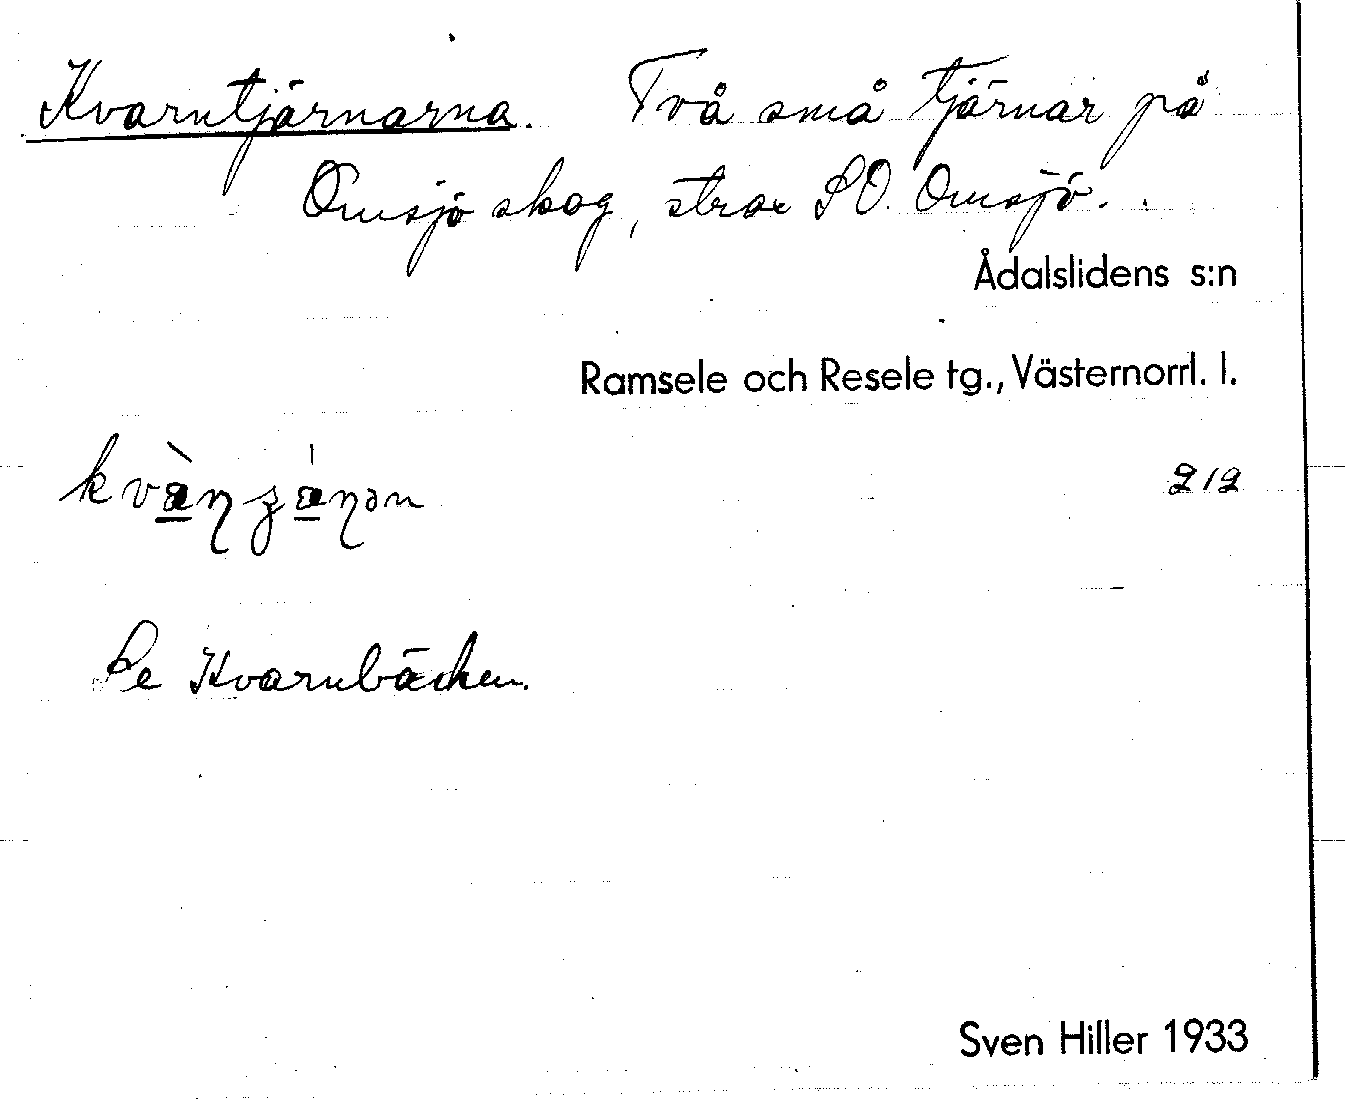 Kvarntjärnarna. Två små tjärnar på
Omsjö skog, strax SO. Omsjö.
Ådalslidens s:n
Ramsele och Resele tg., Västernorrl. l.
212
Se Kvarnbäcken.
Sven Hiller 1933